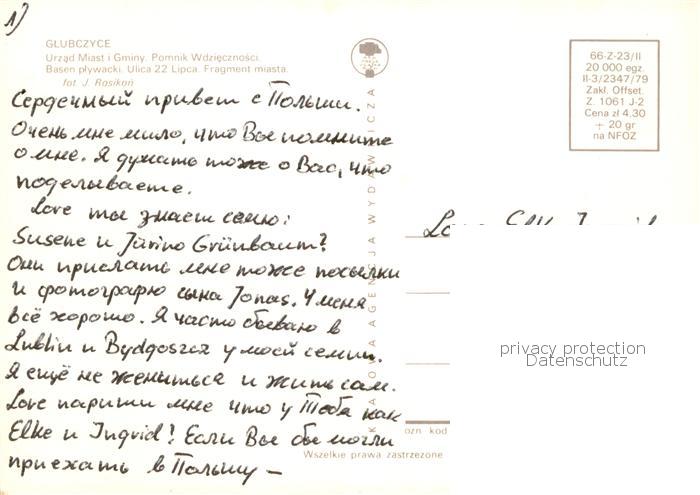 1)
GŁUBCZYCE
Urząd Miast i Gminy. Pomnik Wdzięczności.
Basen pływacki. Ulica 22 Lipca. Fragment miasta.
fot. J. Rosikoń
66-Z-23/II
20 000 egz.
II-3/2347/79
Zakl. Offset.
Z. 1061 J-2
Cena zł 4.30
+ 20 gr
na NFOZ
Сердечный привет с Польши.
Очень мне мило, что Вы помните
о мне. Я думать тоже о Вас, что
поделываете.
Love ты знаеш семю:
Susene и Jürino Grünbaum?
Они прислать мне тоже посылки
и фотографю сына Jonas. У меня
всё хорошо. Я часто бываю в
Lublin и Bydgoszcz у моей семии.
Я ещё не жениться и жить сам.
Love париши мне что у Тебя как
Elke и Ingrid? Если Вы бы могли
приехать в Польшу —
KRAJOWA AGENCJA WYDAWNICZA
ozn kod
Wszelkie prawa zastrzeżone
privacy protection
Datenschutz